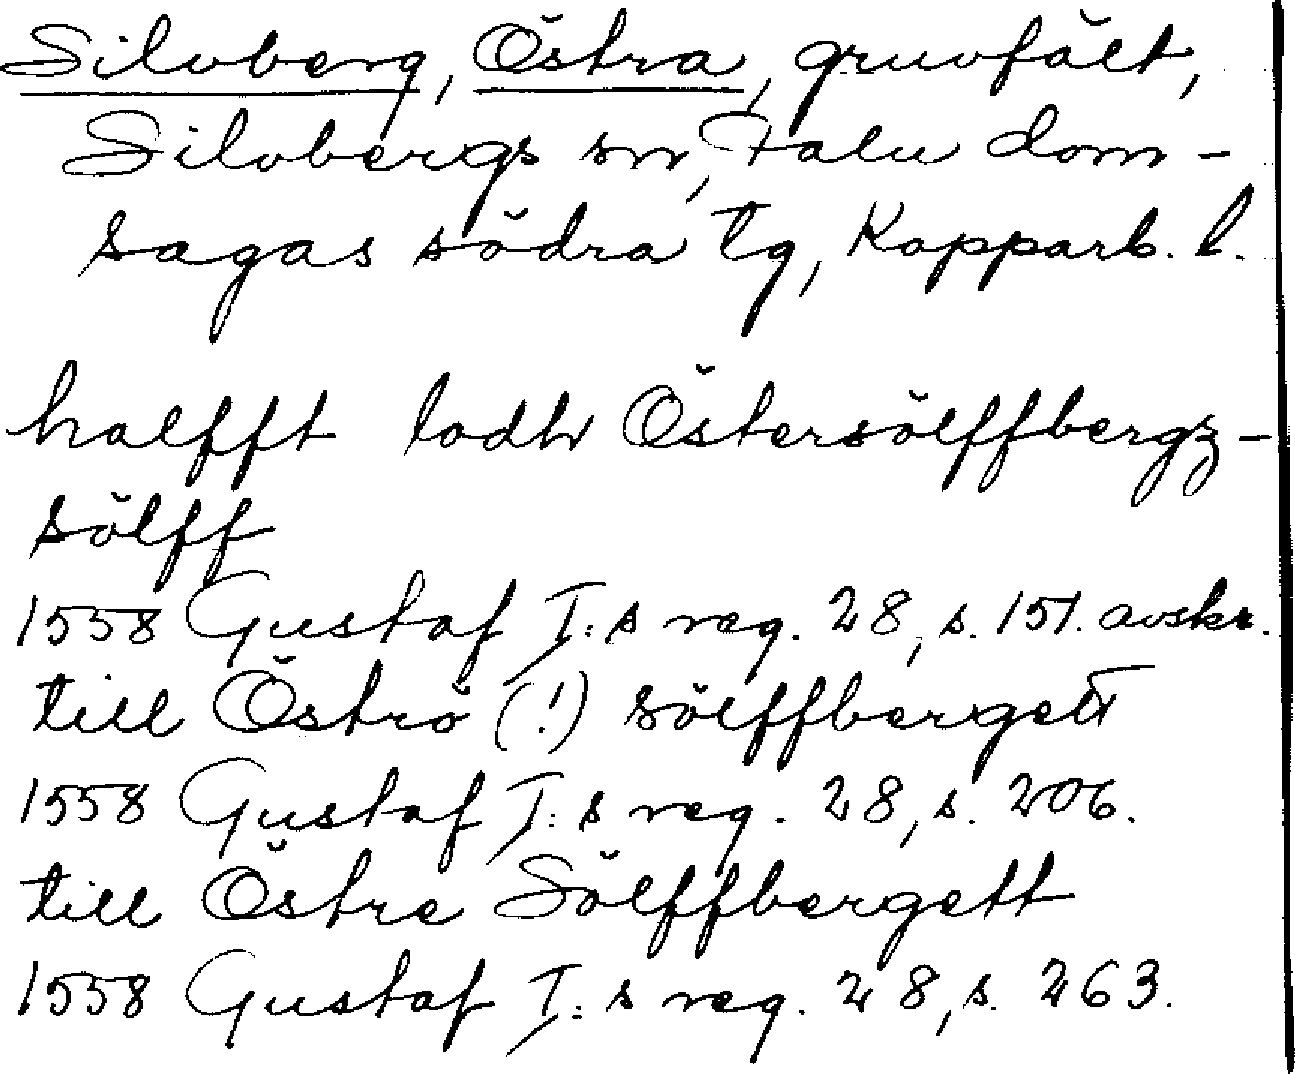 Silvberg, Östra, gruvfält,
Silvbergs sn, Falu dom-
sagas södra tg, Kopparb. l.
halfft lodh Östersölffbergz-
sölff
1558 Gustaf I:s reg. 28, s. 151. avskr.
till Öströ (!) sölffbergett
1558 Gustaf I:s reg. 28, s. 206.
till Östre Sölffbergett
1558 Gustaf I:s reg. 28, s. 263.